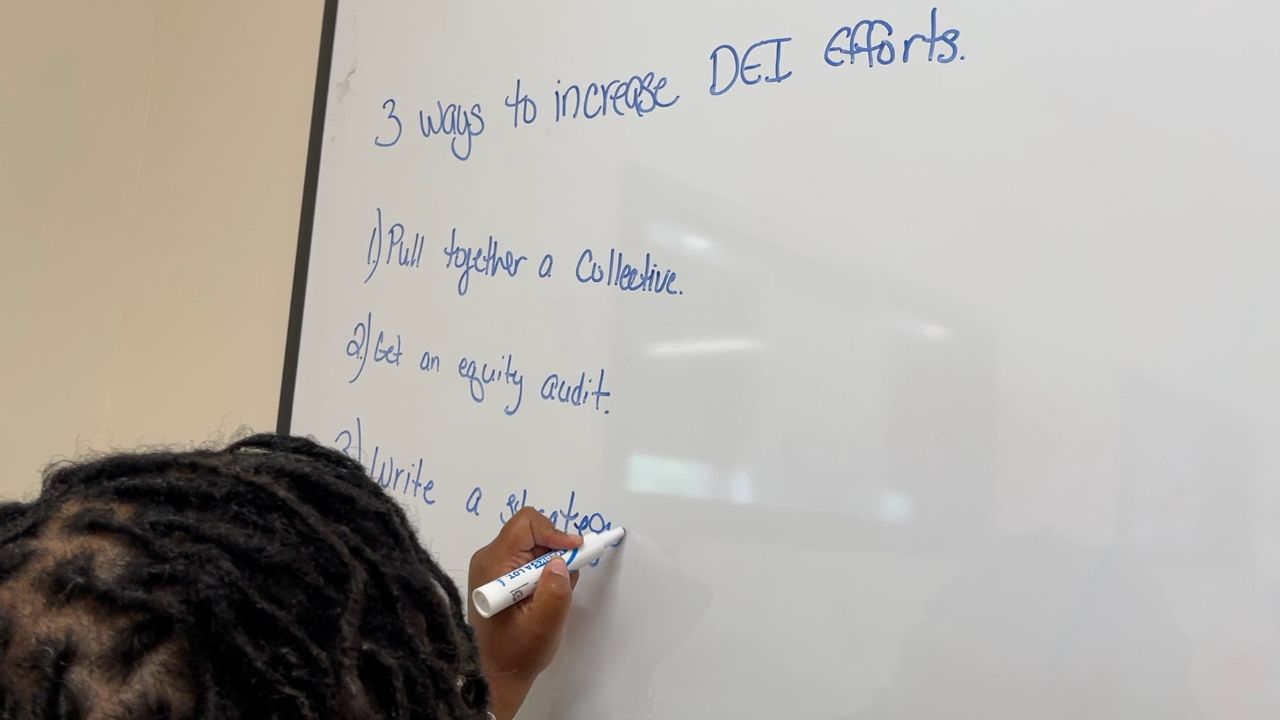 3 ways to increase DEI Efforts.
1.) Pull together a Collective.
2.) Get an equity audit.
3.) Write a strategy
MARKS A LOT